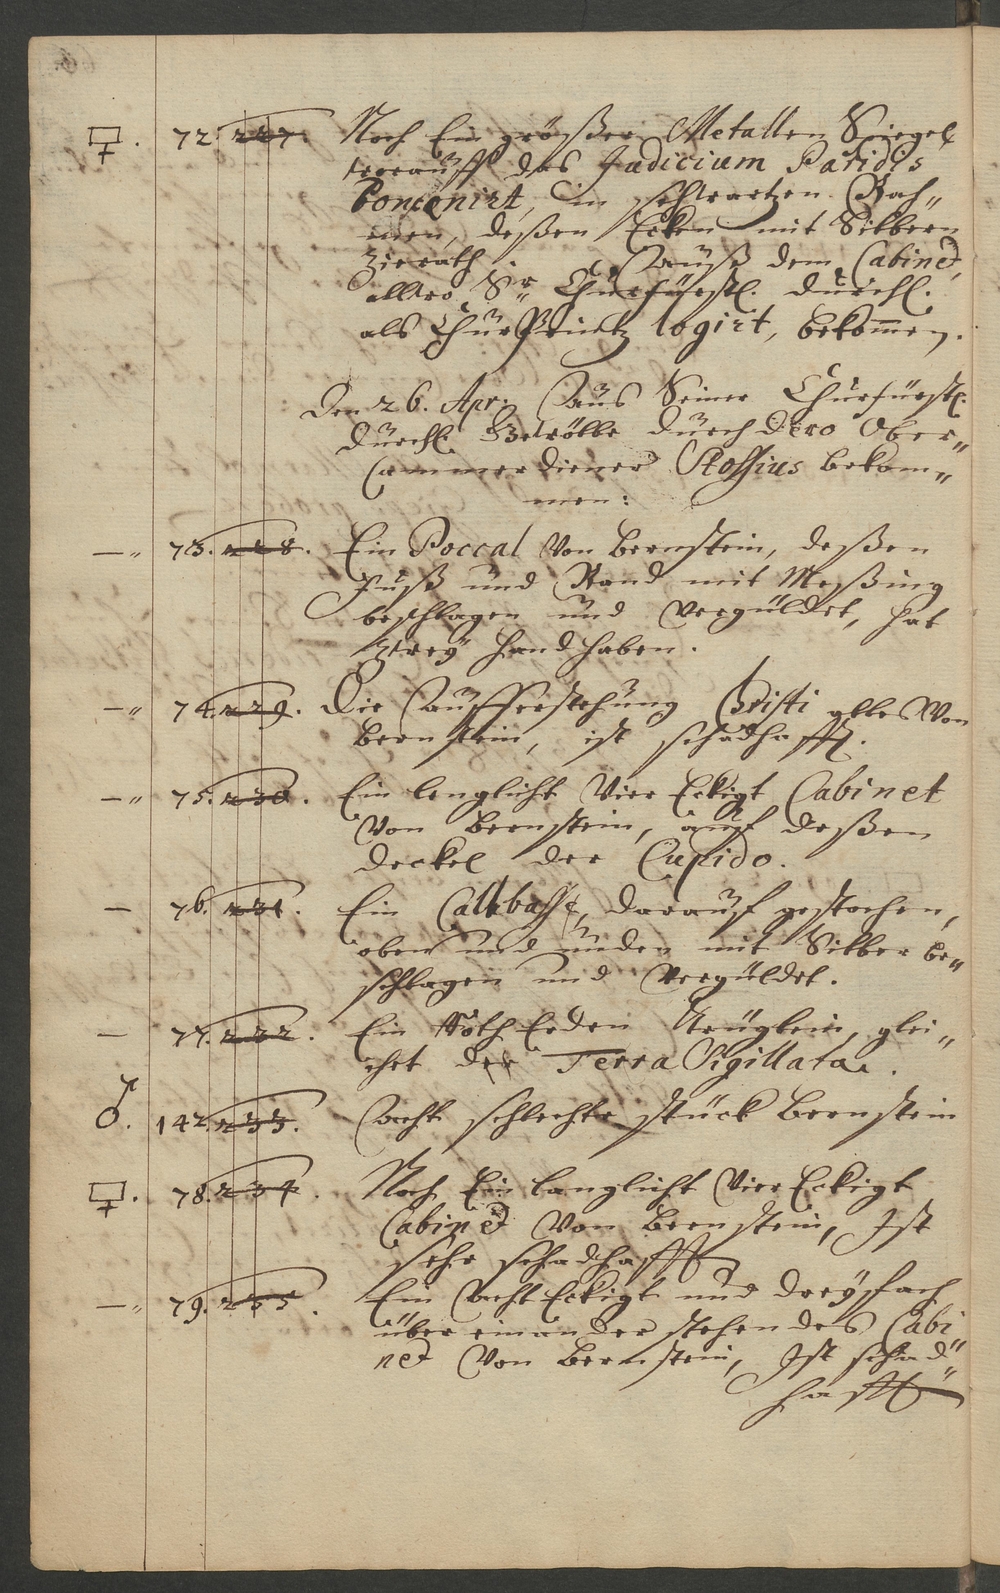 72. 227. Noch Ein großer Metallen Spiegel
worauff das Judicium Paridis
Poncenirt, in schwartzen Rah„
men, deßen Ecken mit Silbern
Zierath. Auß dem Cabinet,
allwo Sr. Churfürstl. Durchl.
als ChurPrintz logirt, bekommen.
Den 26. Apr. Aus Seiner Churfürstl.
Durchl. Gewölbe durch Dero Ober„
Cammerdiener Stossius bekom„
men:
—„ 73. 228. Ein Poccal Von Bernstein, deßen
Fuß und Rand mit Meßing
beschlagen und verguldet, hat
zwey Handhaben.
—„ 74. 229. Die Aufferstehung Christi alles Von
Bernstein, ist schadhafft.
—„ 75. 230. Ein lenglicht Vier Eckigt Cabinet
Von Bernstein, auf deßen
Deckel der Cupido.
— 76. 231. Ein Calebasse, darauf gestochen,
oben und unden mit Silber be„
schlagen und verguldet.
— 77. 232. Ein Roth Erden Krüglein, glei„
chet der Terra Sigillata.
♂. 142. 233. Acht schlechte stück Bernstein
78. 234. Noch Ein langlicht Vier Eckigt
Cabinet Von Bernstein, Ist
sehr schadhafft
—„ 79. 235. Ein Acht Eckigt und dreyfach
über einander stehendes Cabi„
net Von Bernstein, Ist schad„
hafft